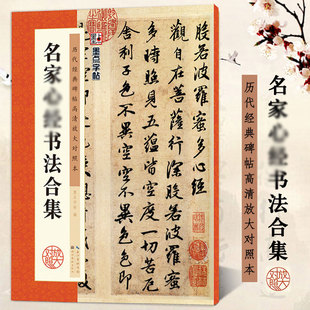 历代经典碑帖高清放大对照本
名家
书法合集
墨点字帖
般若波羅蜜多心經
觀自在菩薩行深般若
波羅蜜多時照見五
蘊皆空度一切苦厄
舍利子色不異空空不異色色即
名家
书法合集
历代经典碑帖高清放大对照本
放大
对照